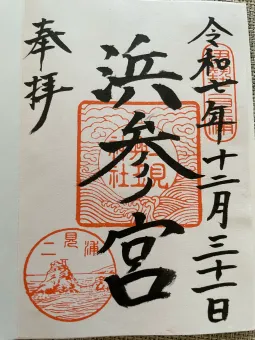 令和七年十二月三十一日
浜参宮
奉拝
二見興玉神社
二見浦